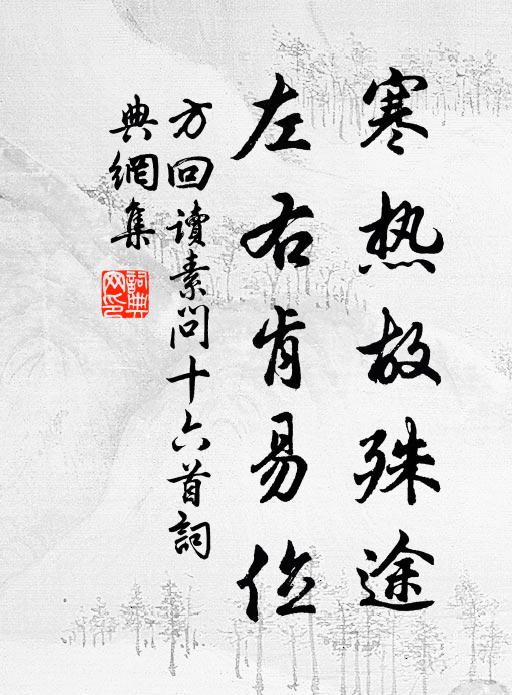 寒热故殊途
左右肯易位
方回读素问十六首詞
典網集
詞典
网印